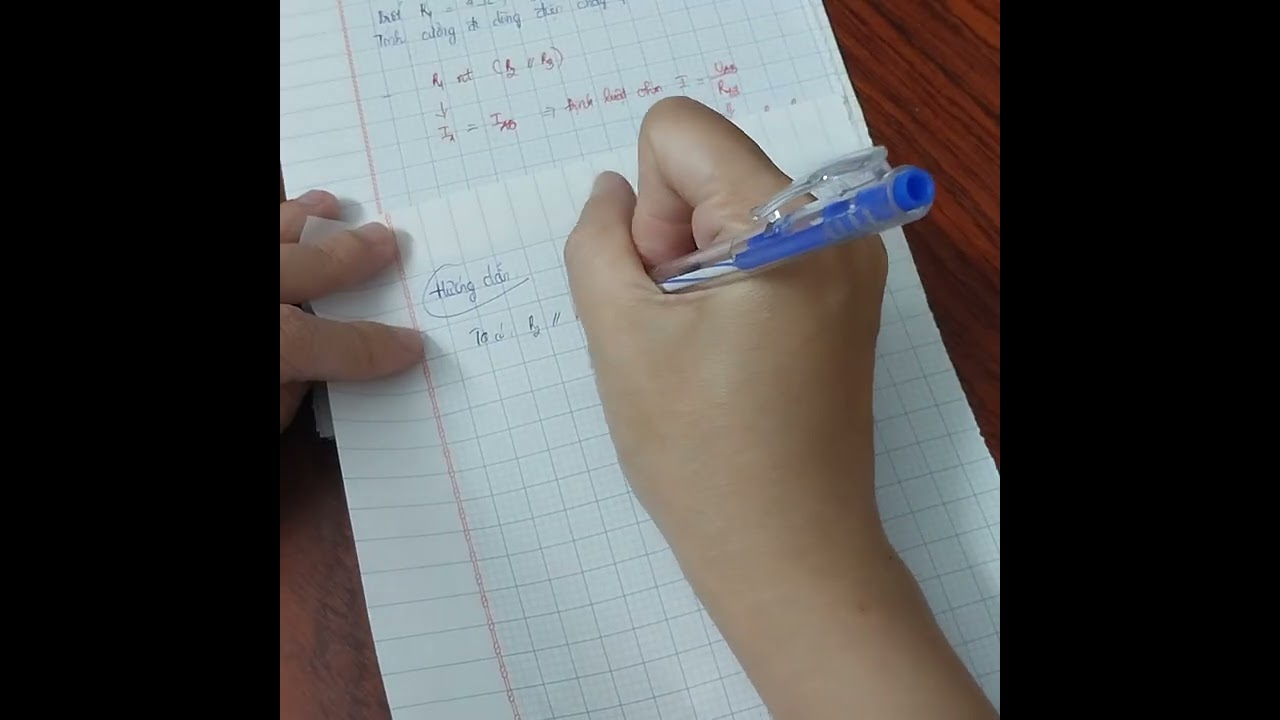 R₁ =
Tính cường độ dòng điện chạy
R₁ nt (R₂ // R₃)
↓
I₁ = I_AB ⇒ Định luật ôhm I = U_AB / R_AB
Hướng dẫn
Ta có: R₂ //